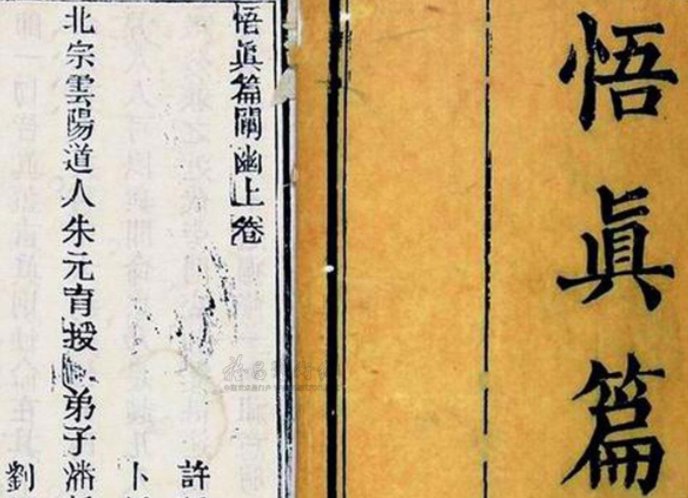 悟眞篇
悟眞篇闡幽上卷
許
卜
北宗雲陽道人朱元育授 弟子潘
劉